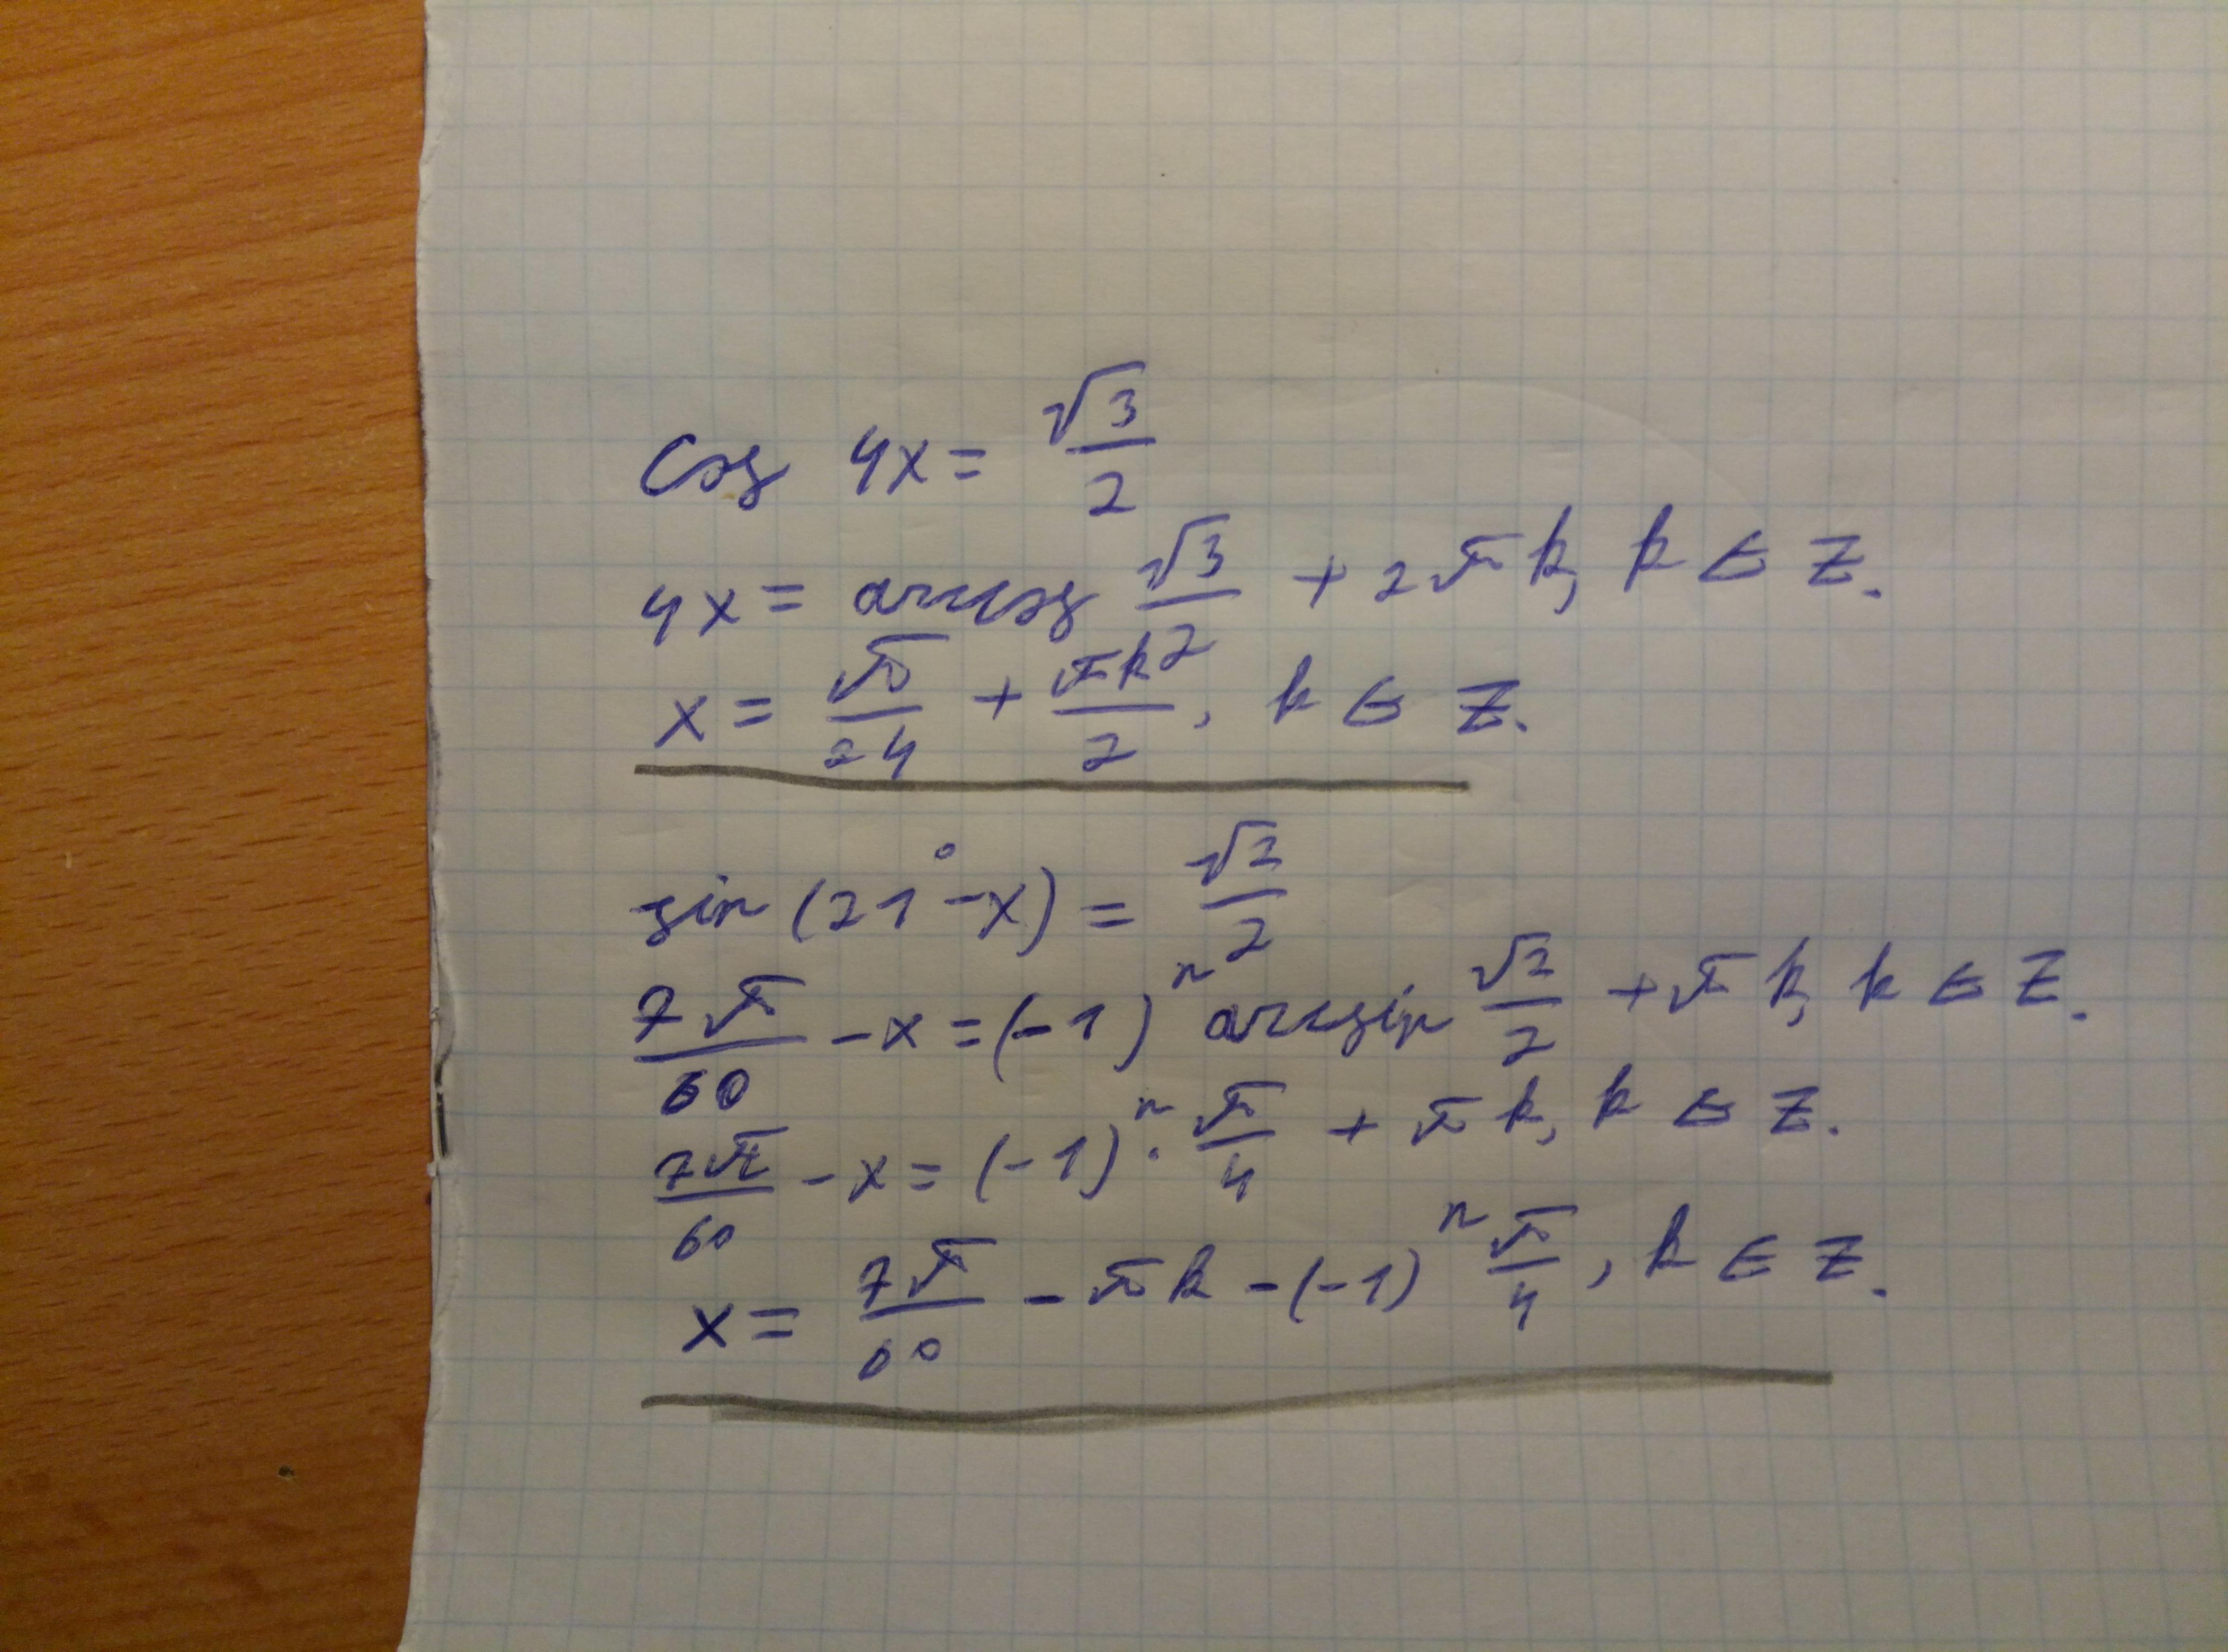 cos 4x = √3/2
4x = arccos √3/2 + 2πk, k ∈ Z.
x = π/24 + πk/2, k ∈ Z.
sin (21° - x) = √2/2
7π/60 - x = (-1)ⁿ arcsin √2/2 + πk, k ∈ Z.
7π/60 - x = (-1)ⁿ · π/4 + πk, k ∈ Z.
x = 7π/60 - πk - (-1)ⁿ π/4, k ∈ Z.